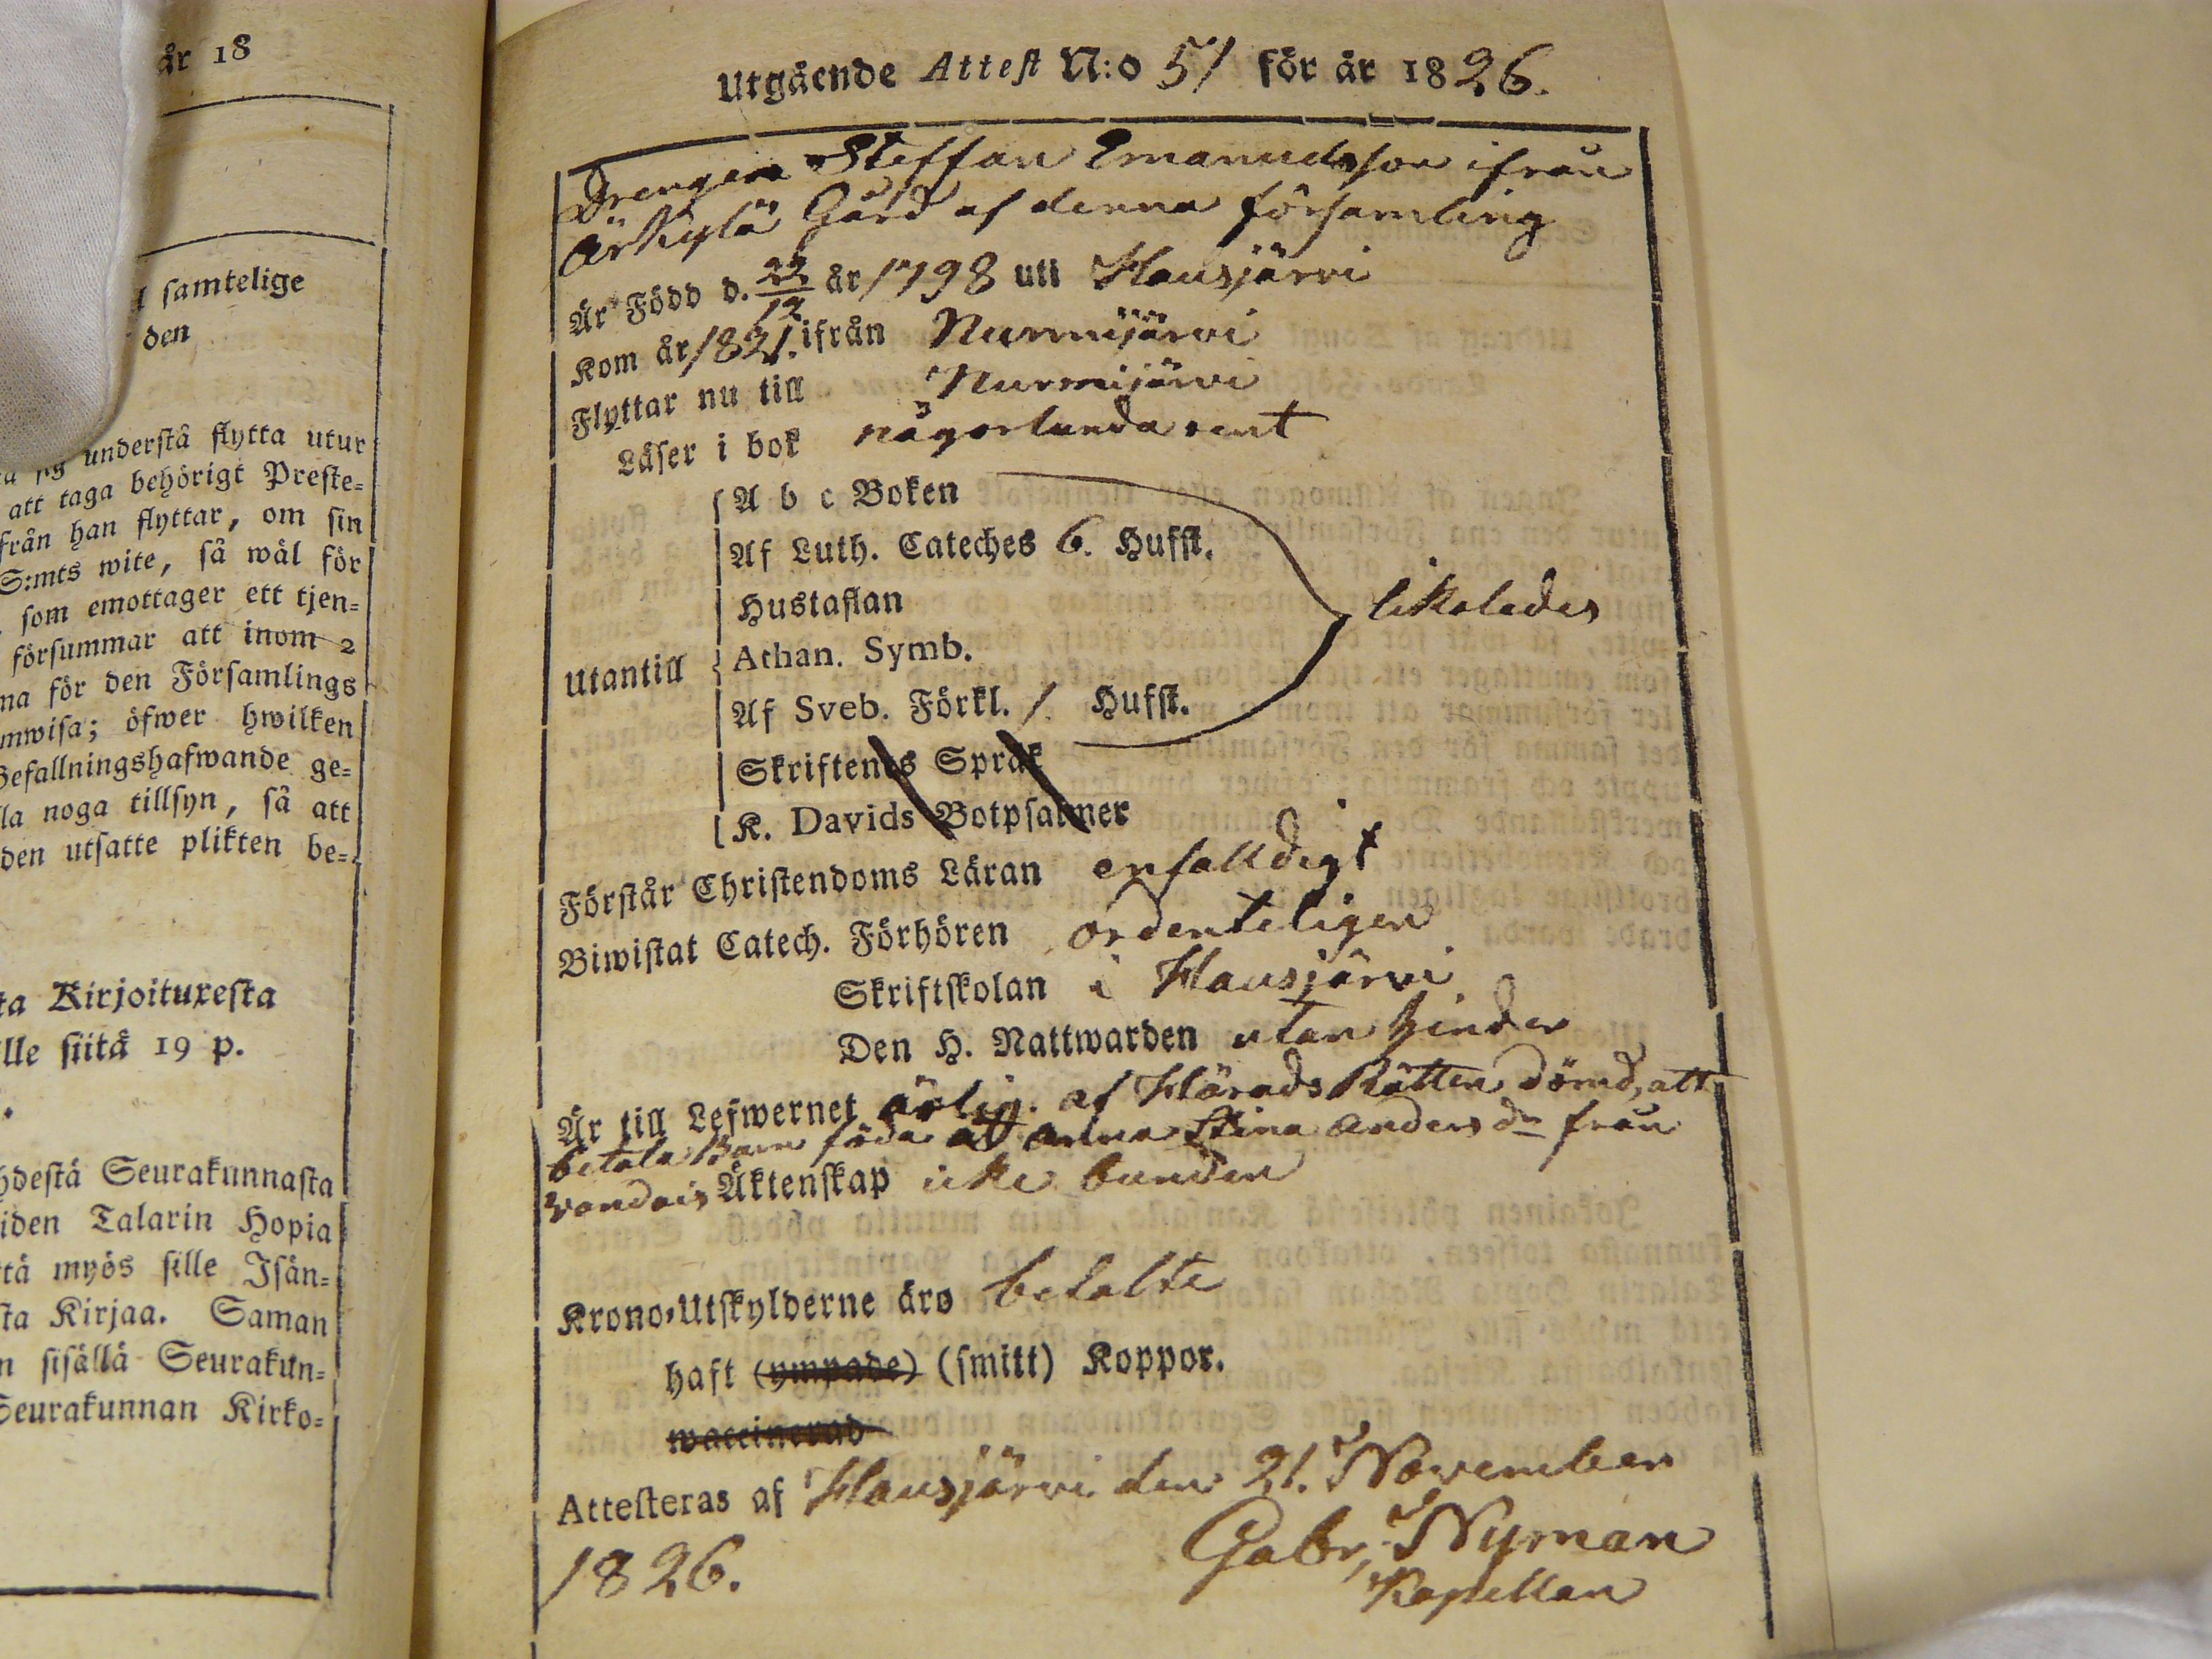 år 18
samtelige
den
understå flytta utur
att taga behörigt Preste-
från han flyttar, om sin
S:mts wite, så wäl för
som emottager ett tjen-
försummar att inom 2
na för den Församlings
mwisa; öfwer hwilken
Befallningshafwande ge-
la noga tillsyn, så att
den utsatte plikten be-
ta Kirjoituxesta
lle siitä 19 p.
hdestä Seurakunnasta
iden Talarin Hopia
tä myös sille Isän-
sta Kirjaa. Saman
n sisällä Seurakun-
Seurakunnan Kirko-
Utgående Attest N:o 51 för år 1826.
Drengen Steffan Emanuelsson ifrån
Ärkylä Gård af denna församling
Är Född d. 22/12 år 1798 uti Hausjärvi
Kom år 1821. ifrån Nurmijärvi
Flyttar nu till Nurmijärvi
Läser i bok någorlunda rent
A b c Boken
Af Luth. Cateches 6. Hufst.
Hustaflan
likaledes
Utantill
Athan. Symb.
Af Sveb. Förkl. 1. Hufst.
Skriftenes Språk
K. Davids Botpsalmer
Förstår Christendoms Läran enfalldigt
Biwistat Catech. Förhören ordenteligen
Skriftskolan i Hausjärvi
Den H. Nattwarden utan hinder
Är till Lefwernet ärlig. af Härads Rätten dömd, att
betala Barn föda åt Anna Stina Anders dr från
Äktenskap icke bunden
Krono-Utskylderne äro betalte
haft (ympade) (smitt) Koppor.
waccinerad
Attesteras af Hausjärvi den 21. November
1826.
Gabr. Nyman
Kapellan